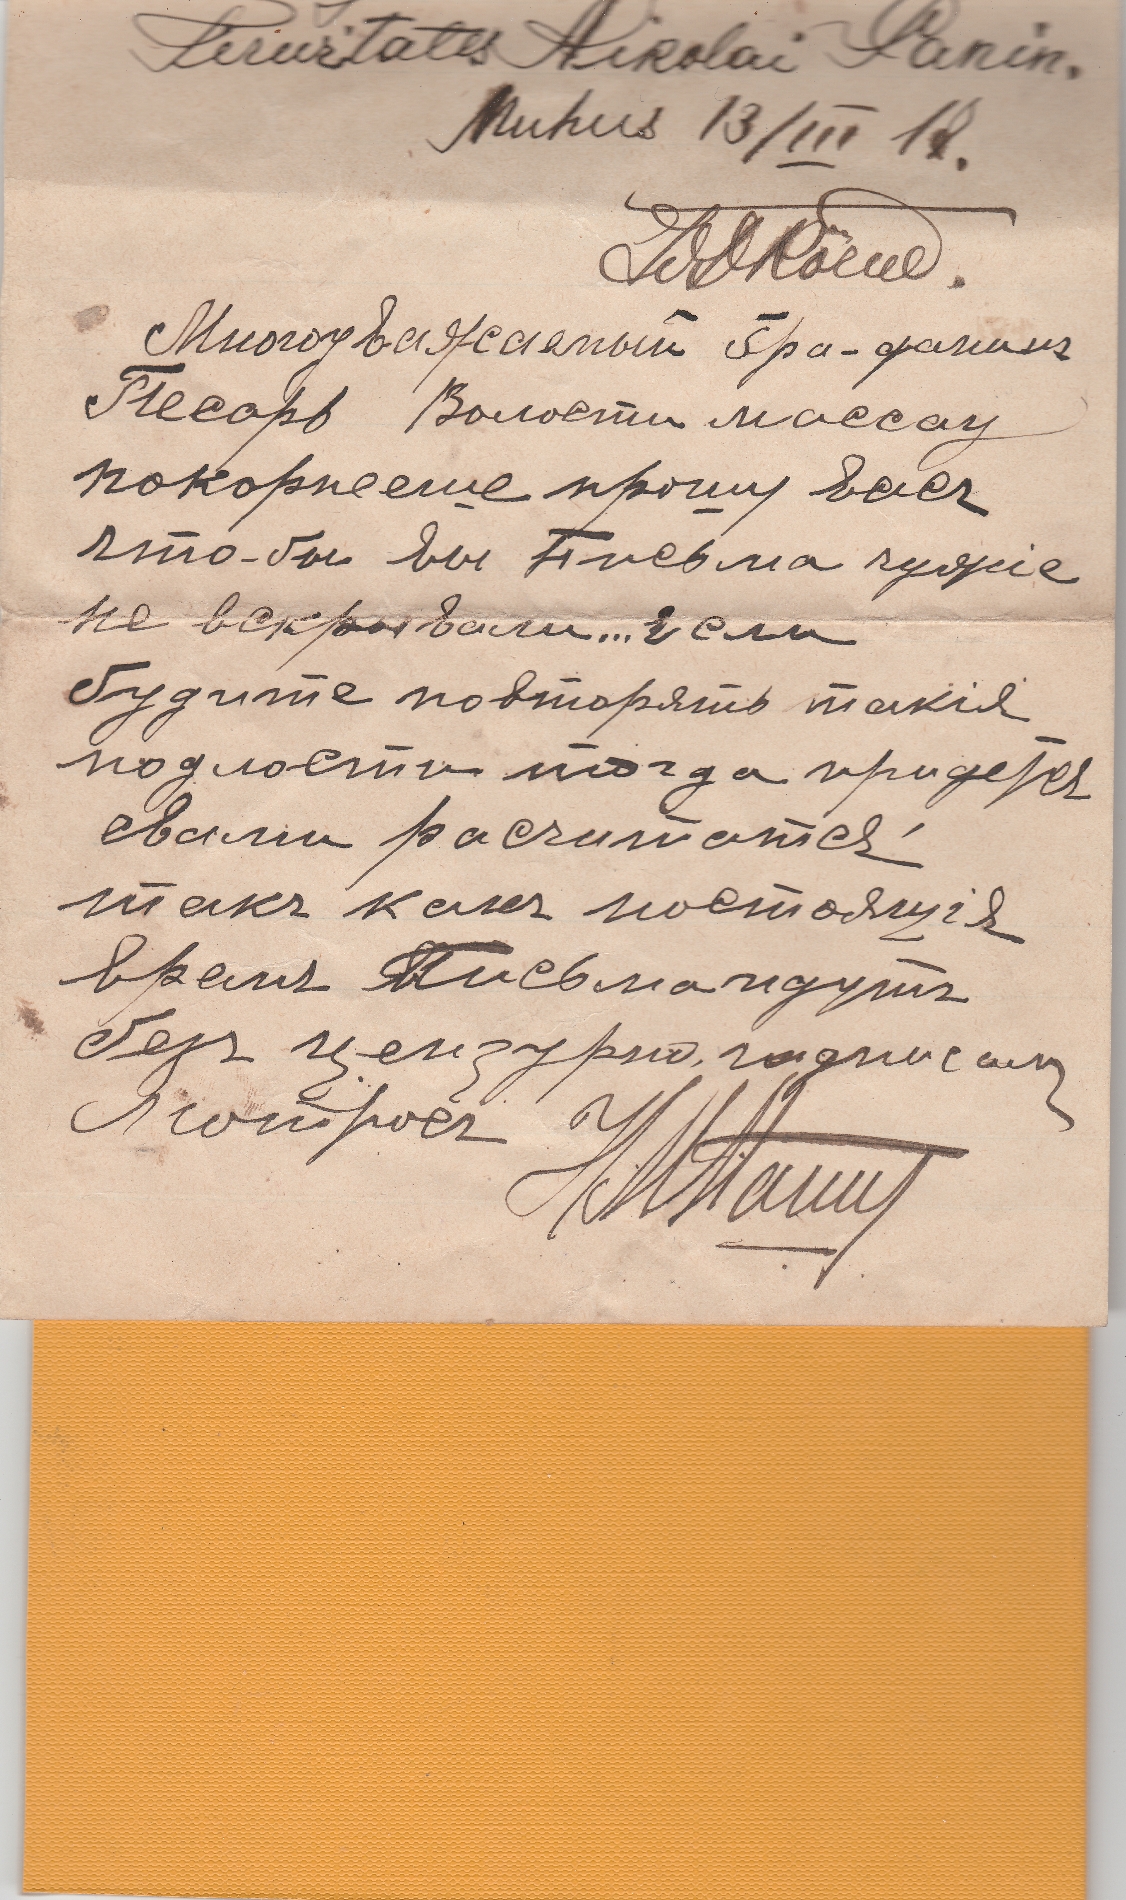 Teruitates Nikolai Panin.
Muhus 13/III 18.
Многоуважаемый Гра-данинъ
Песарь Волости массау
покорнееше прошу васъ
что-бы вы Письма чужіе
не вскрывали... если
будите повторять такія
подлости тогда придется
свами расчитатся!
такъ какъ ностоящія
времъ Письма идутъ
безъ цензурно, подписалъ
Н Пани